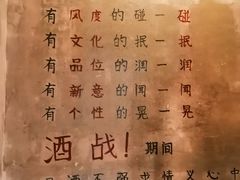 有风度的碰一碰
有文化的抿一抿
有品位的润一润
有新意的闻一闻
有个性的晃一晃
酒战！期间
酒不强求情义心中